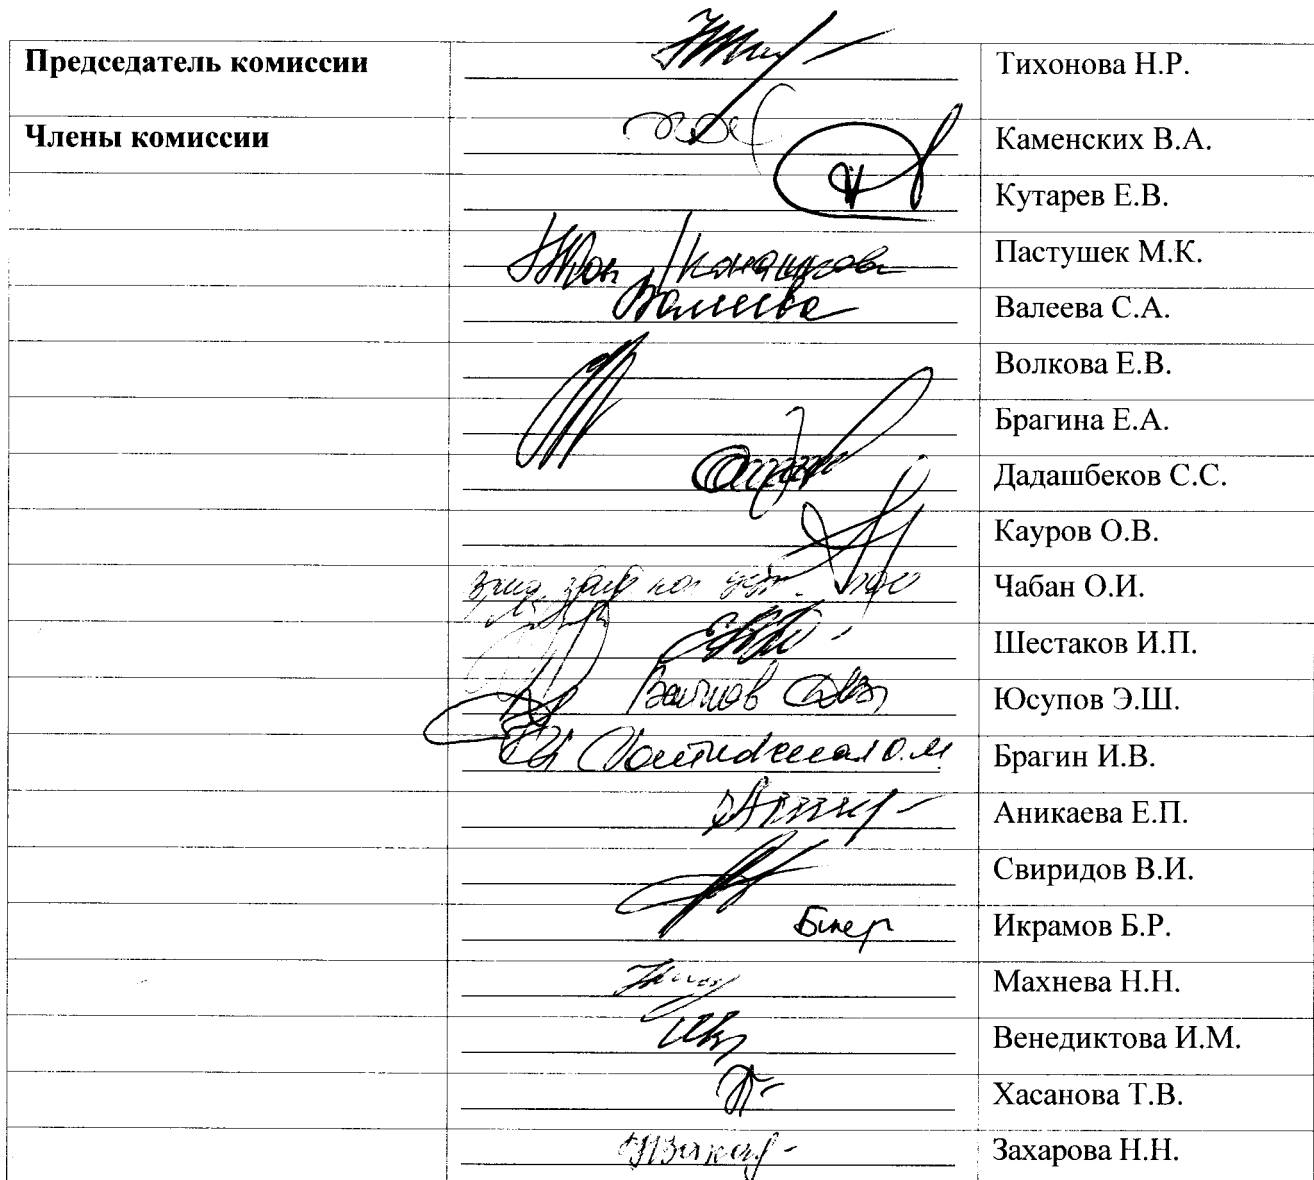 Председатель комиссии Тихонова Н.Р.
Члены комиссии Каменских В.А.
Кутарев Е.В.
Пастушек М.К.
Валеева Валеева С.А.
Волкова Е.В.
Брагина Е.А.
Дадашбеков С.С.
Кауров О.В.
Чабан О.И.
Шестаков И.П.
Юсупов Э.Ш.
О.М. Брагин И.В.
Аникаева Е.П.
Свиридов В.И.
Икрамов Б.Р.
Махнева Н.Н.
Венедиктова И.М.
Хасанова Т.В.
Захарова Н.Н.